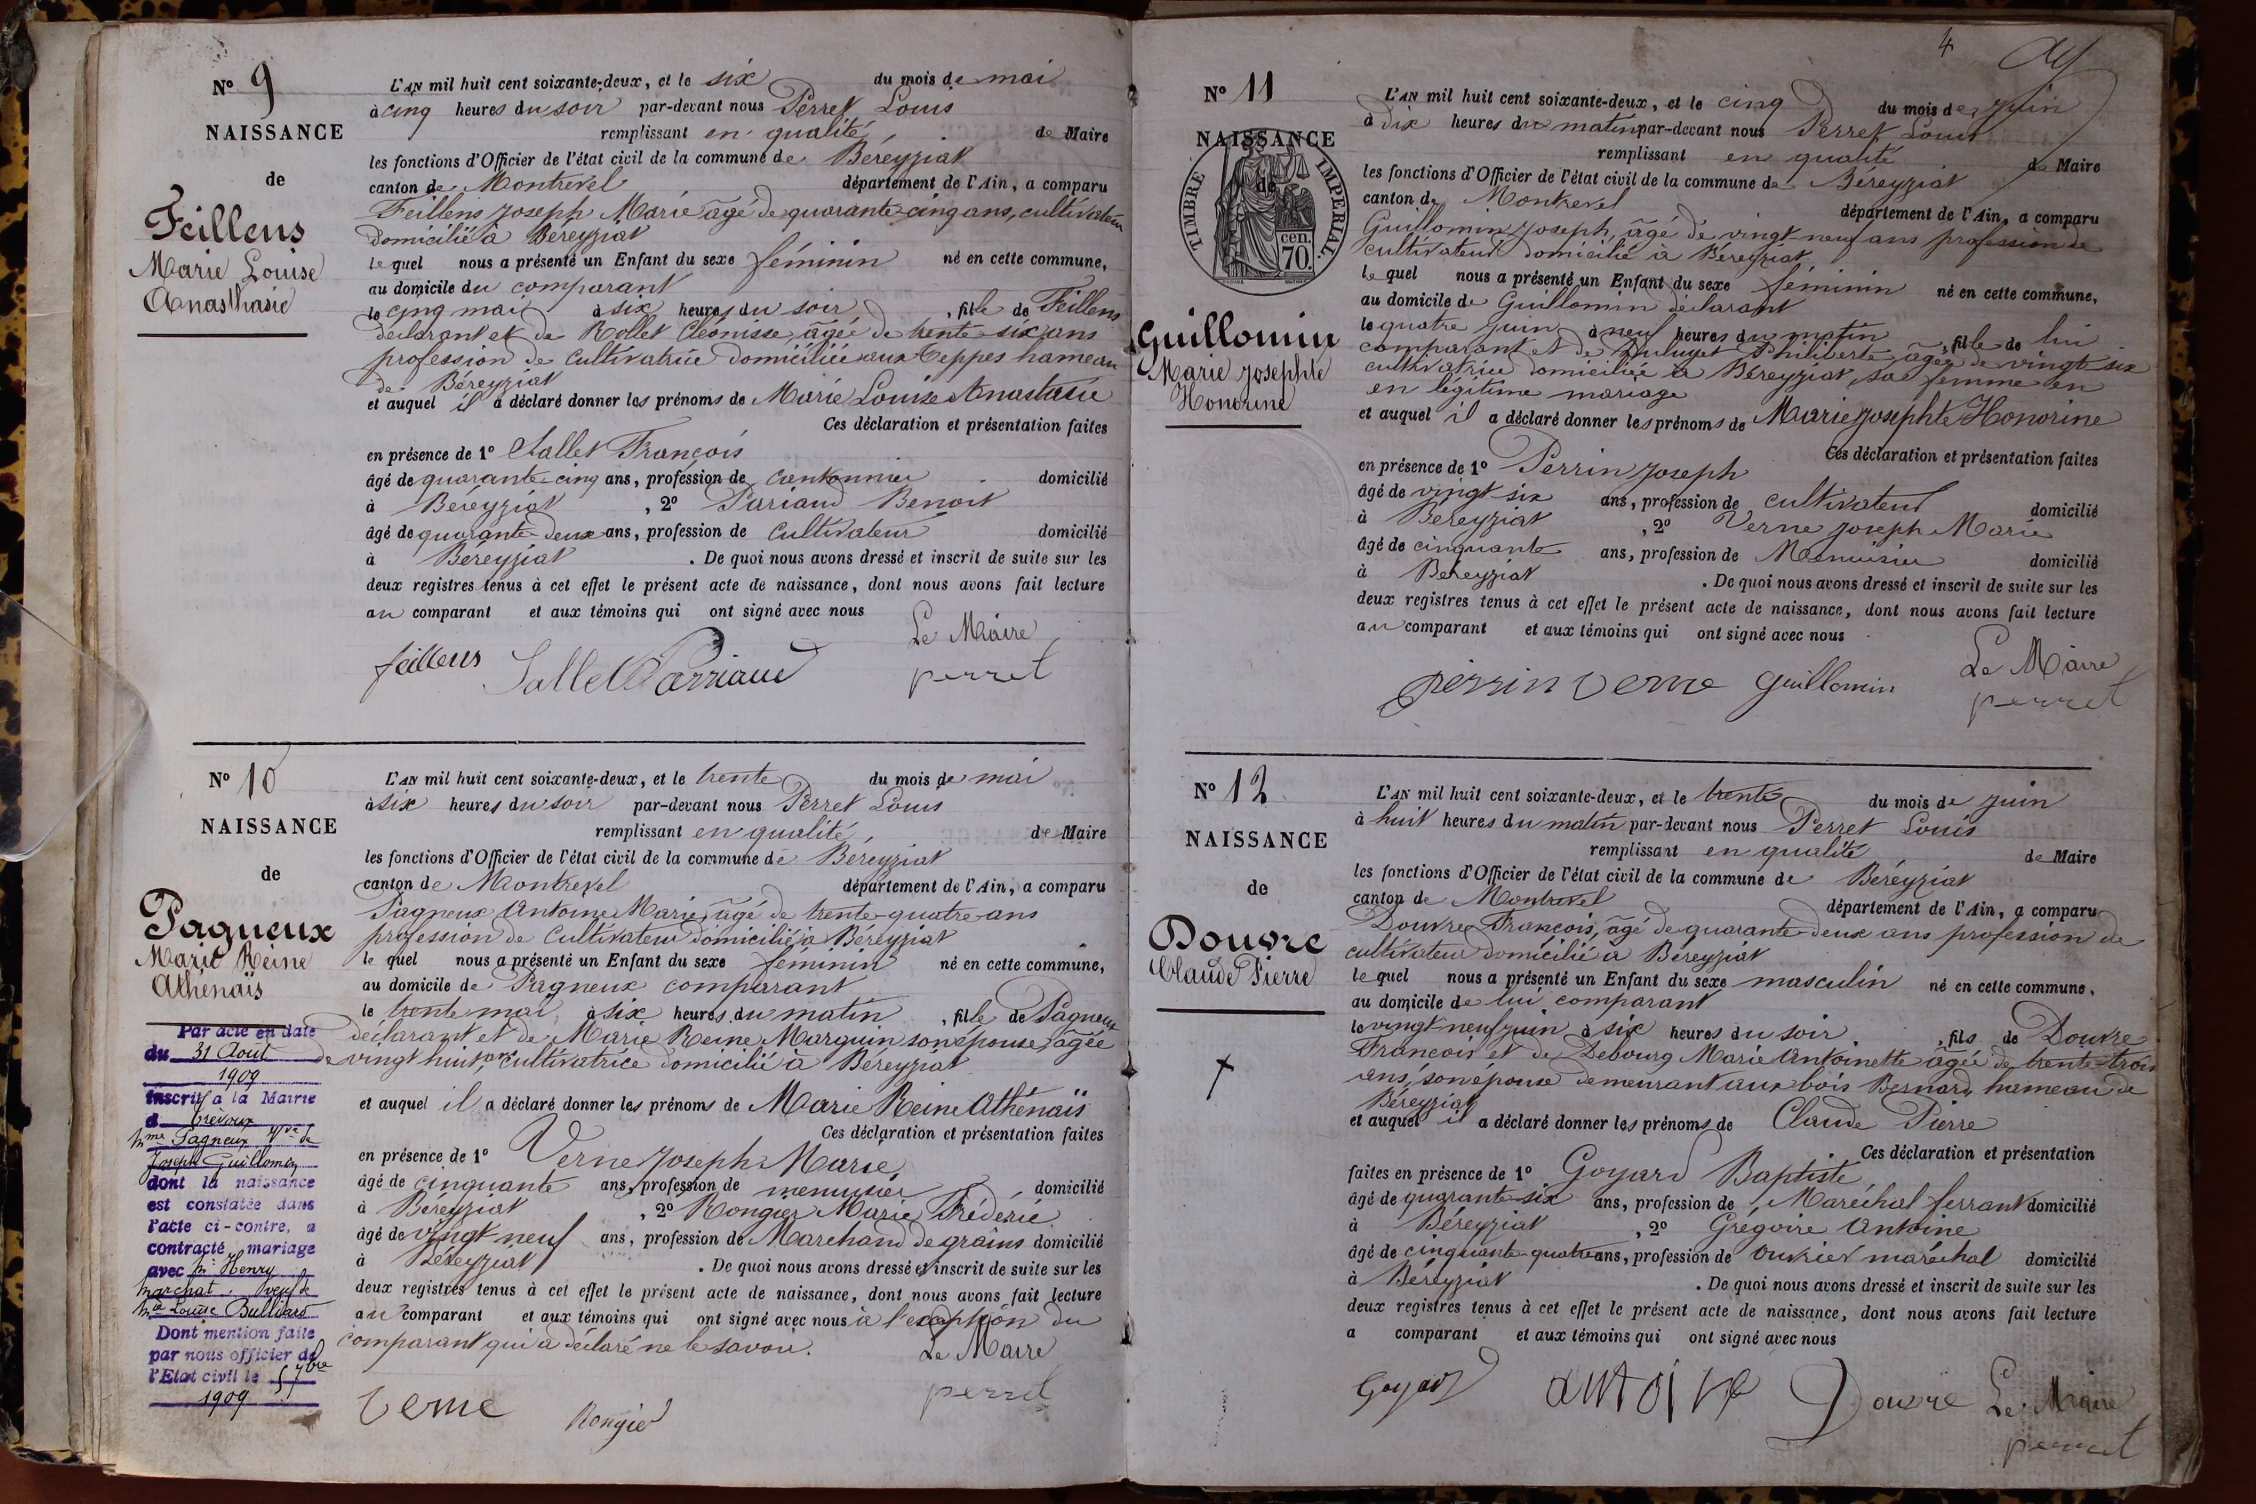 Nº 9
NAISSANCE
de
Feillens
Marie Louise
Anasthasie
L'AN mil huit cent soixante-deux, et le six du mois de mai
à cinq heures du soir par-devant nous Perret Louis
remplissant en qualité de Maire
les fonctions d'Officier de l'état civil de la commune de Béreyziat
canton de Montrevel département de l'Ain, a comparu
Feillens Joseph Marie âgé de quarante-cinq ans, cultivateur
domicilié à Béreyziat
lequel nous a présenté un Enfant du sexe féminin né en cette commune,
au domicile du comparant
le cinq mai à six heures du soir, fille de Feillens
déclarant et de Rollet Cléonisse, âgée de trente six ans
profession de cultivatrice domiciliée aux Teppes hameau
de Béreyziat
et auquel il a déclaré donner les prénoms de Marie Louise Anastasie
Ces déclaration et présentation faites
en présence de 1º Sallet François
âgé de quarante-cinq ans, profession de cantonnier domicilié
à Béreyziat, 2º Pariaud Benoit
âgé de quarante-deux ans, profession de cultivateur domicilié
à Béreyziat. De quoi nous avons dressé et inscrit de suite sur les
deux registres tenus à cet effet le présent acte de naissance, dont nous avons fait lecture
au comparant et aux témoins qui ont signé avec nous
Le Maire
feillens Sallet Parriaud perret
Nº 10
NAISSANCE
de
Pagneux
Marie Reine
Athénaïs
Par acte en date
du 31 Aout
1909
inscrit à la Mairie
d Trévoux
Mme Pagneux Vve de
Joseph Guillomin
dont la naissance
est constatée dans
l'acte ci-contre, a
contracté mariage
avec Mr Henry
Marchat veuf de
Mie Louise Bulliard
Dont mention faite
par nous officier de
l'Etat civil le 5 7bre
1909
L'AN mil huit cent soixante-deux, et le trente du mois de mai
à six heures du soir par-devant nous Perret Louis
remplissant en qualité, de Maire
les fonctions d'Officier de l'état civil de la commune de Béreyziat
canton de Montrevel département de l'Ain, a comparu
Pagneux Antoine Marie, âgé de trente-quatre ans
profession de Cultivateur domicilié à Béreyziat
lequel nous a présenté un Enfant du sexe féminin né en cette commune,
au domicile de Pagneux comparant
le trente mai à six heures du matin, fille de Pagneux
déclarant et de Marie Reine Marguin son épouse, âgée
de vingt huit ans, cultivatrice domicilié à Béreyziat
et auquel il a déclaré donner les prénoms de Marie Reine Athénaïs
Ces déclaration et présentation faites
en présence de 1º Verne Joseph Marie
âgé de cinquante ans, profession de menuisier domicilié
à Béreyziat, 2º Rongier Marie Fréderic
âgé de vingt-neuf ans, profession de Marchand de grains domicilié
à Béreyziat. De quoi nous avons dressé et inscrit de suite sur les
deux registres tenus à cet effet le présent acte de naissance, dont nous avons fait lecture
au comparant et aux témoins qui ont signé avec nous à l'exception du
comparant qui a déclaré ne le savoir. Le Maire
Verne Rongier perret
4
Nº 11
NAISSANCE
de
TIMBRE IMPERIAL
70 cen.
Guillomin
Marie Josephte
Honorine
L'AN mil huit cent soixante-deux, et le cinq du mois de juin
à dix heures du matin par-devant nous Perret Louis
remplissant en qualité de Maire
les fonctions d'Officier de l'état civil de la commune de Béreyziat
canton de Montrevel département de l'Ain, a comparu
Guillomin Joseph, âgé de vingt-neuf ans profession de
cultivateur domicilié à Béreyziat
lequel nous a présenté un Enfant du sexe féminin né en cette commune,
au domicile de Guillomin déclarant
le quatre juin à neuf heures du matin, fille de lui
comparant et de Philiberte âgée de vingt-six
cultivatrice domiciliée à Béreyziat, sa femme en
en légitime mariage
et auquel il a déclaré donner les prénoms de Marie Josephte Honorine
Ces déclaration et présentation faites
en présence de 1º Perrin Joseph
âgé de vingt-six ans, profession de cultivateur domicilié
à Béreyziat, 2º Verne Joseph Marie
âgé de cinquante ans, profession de Menuisier domicilié
à Béreyziat. De quoi nous avons dressé et inscrit de suite sur les
deux registres tenus à cet effet le présent acte de naissance, dont nous avons fait lecture
au comparant et aux témoins qui ont signé avec nous
Le Maire
perrin verne guillomin perret
Nº 12
NAISSANCE
de
Douvre
Claude Pierre
L'AN mil huit cent soixante-deux, et le trente du mois de juin
à huit heures du matin par-devant nous Perret Louis
remplissant en qualité de Maire
les fonctions d'Officier de l'état civil de la commune de Béréyziat
canton de Montrevel département de l'Ain, a comparu
Douvre François, âgé de quarante-deux ans profession de
cultivateur domicilié à Béreyziat
lequel nous a présenté un Enfant du sexe masculin né en cette commune,
au domicile de lui comparant
le vingt-neuf juin à six heures du soir, fils de Douvre
François et de Debourg Marie Antoinette âgée de trente-trois
ans, son épouse demeurant aux bois Bernard, hameau de
Béreyziat
et auquel il a déclaré donner les prénoms de Claude Pierre
Ces déclaration et présentation
faites en présence de 1º Goyard Baptiste
âgé de quarante-six ans, profession de Maréchal ferrant domicilié
à Béreyziat, 2º Grégoire Antoine
âgé de cinquante-quatre ans, profession de ouvrier maréchal domicilié
à Béreyziat. De quoi nous avons dressé et inscrit de suite sur les
deux registres tenus à cet effet le présent acte de naissance, dont nous avons fait lecture
a comparant et aux témoins qui ont signé avec nous
Goyard antoine Douvre Le Maire
perret